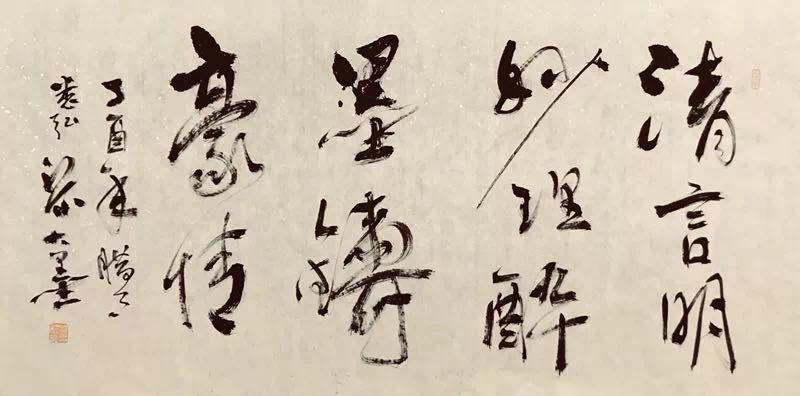 清言明
妙理醉
墨鑄
豪情
丁酉年